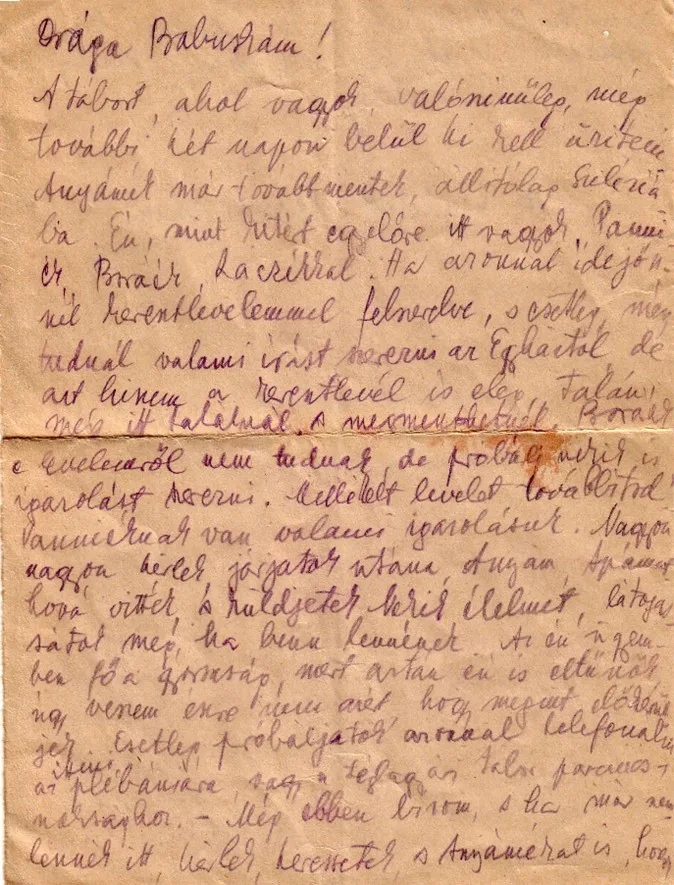 Drága Babuskám!
A tábort, ahol vagyok, valószinüleg, még
további két napon belül ki kell üriteni
Anyámék már továbbmentek, állitólag Sziléziá
ba. Én, mint kitért egyelőre itt vagyok, Panni
ék, Boráék, Laczikkal. Ha azonnal idejön-
nél keresztlevelemmel felszerelve, s esetleg, még
tudnál valami irást szerezni az Egyháztól, de
azt hiszem a keresztlevél is elég, talán
még itt találnál, s megmenthetnél. Boráék
e levelemről nem tudnak, de próbálj nekik is
igazolást szerezni. Mellékelt levelet továbbitsd
Panniéknak van valami igazolásuk. Nagyon
nagyon kérlek, járjatok utána, Anyám, Apámat
hová vitték, s küldjetek Nekik élelmet, látogas-
sátok meg, ha benn lennének. Az én ügyem-
ben fő a gyorsaság, mert aztán én is eltünök
úgy veszem észre nem azért, hogy megint előkerül
jek. Esetleg próbáljatok azonnal telefonálni
az itteni plébániára, vagy a téglagyári tábor parancs-
noksághoz. - Még ebben bizom, s ha már nem
lennék itt, kérlek, keressetek, s Anyámékat is, hogy